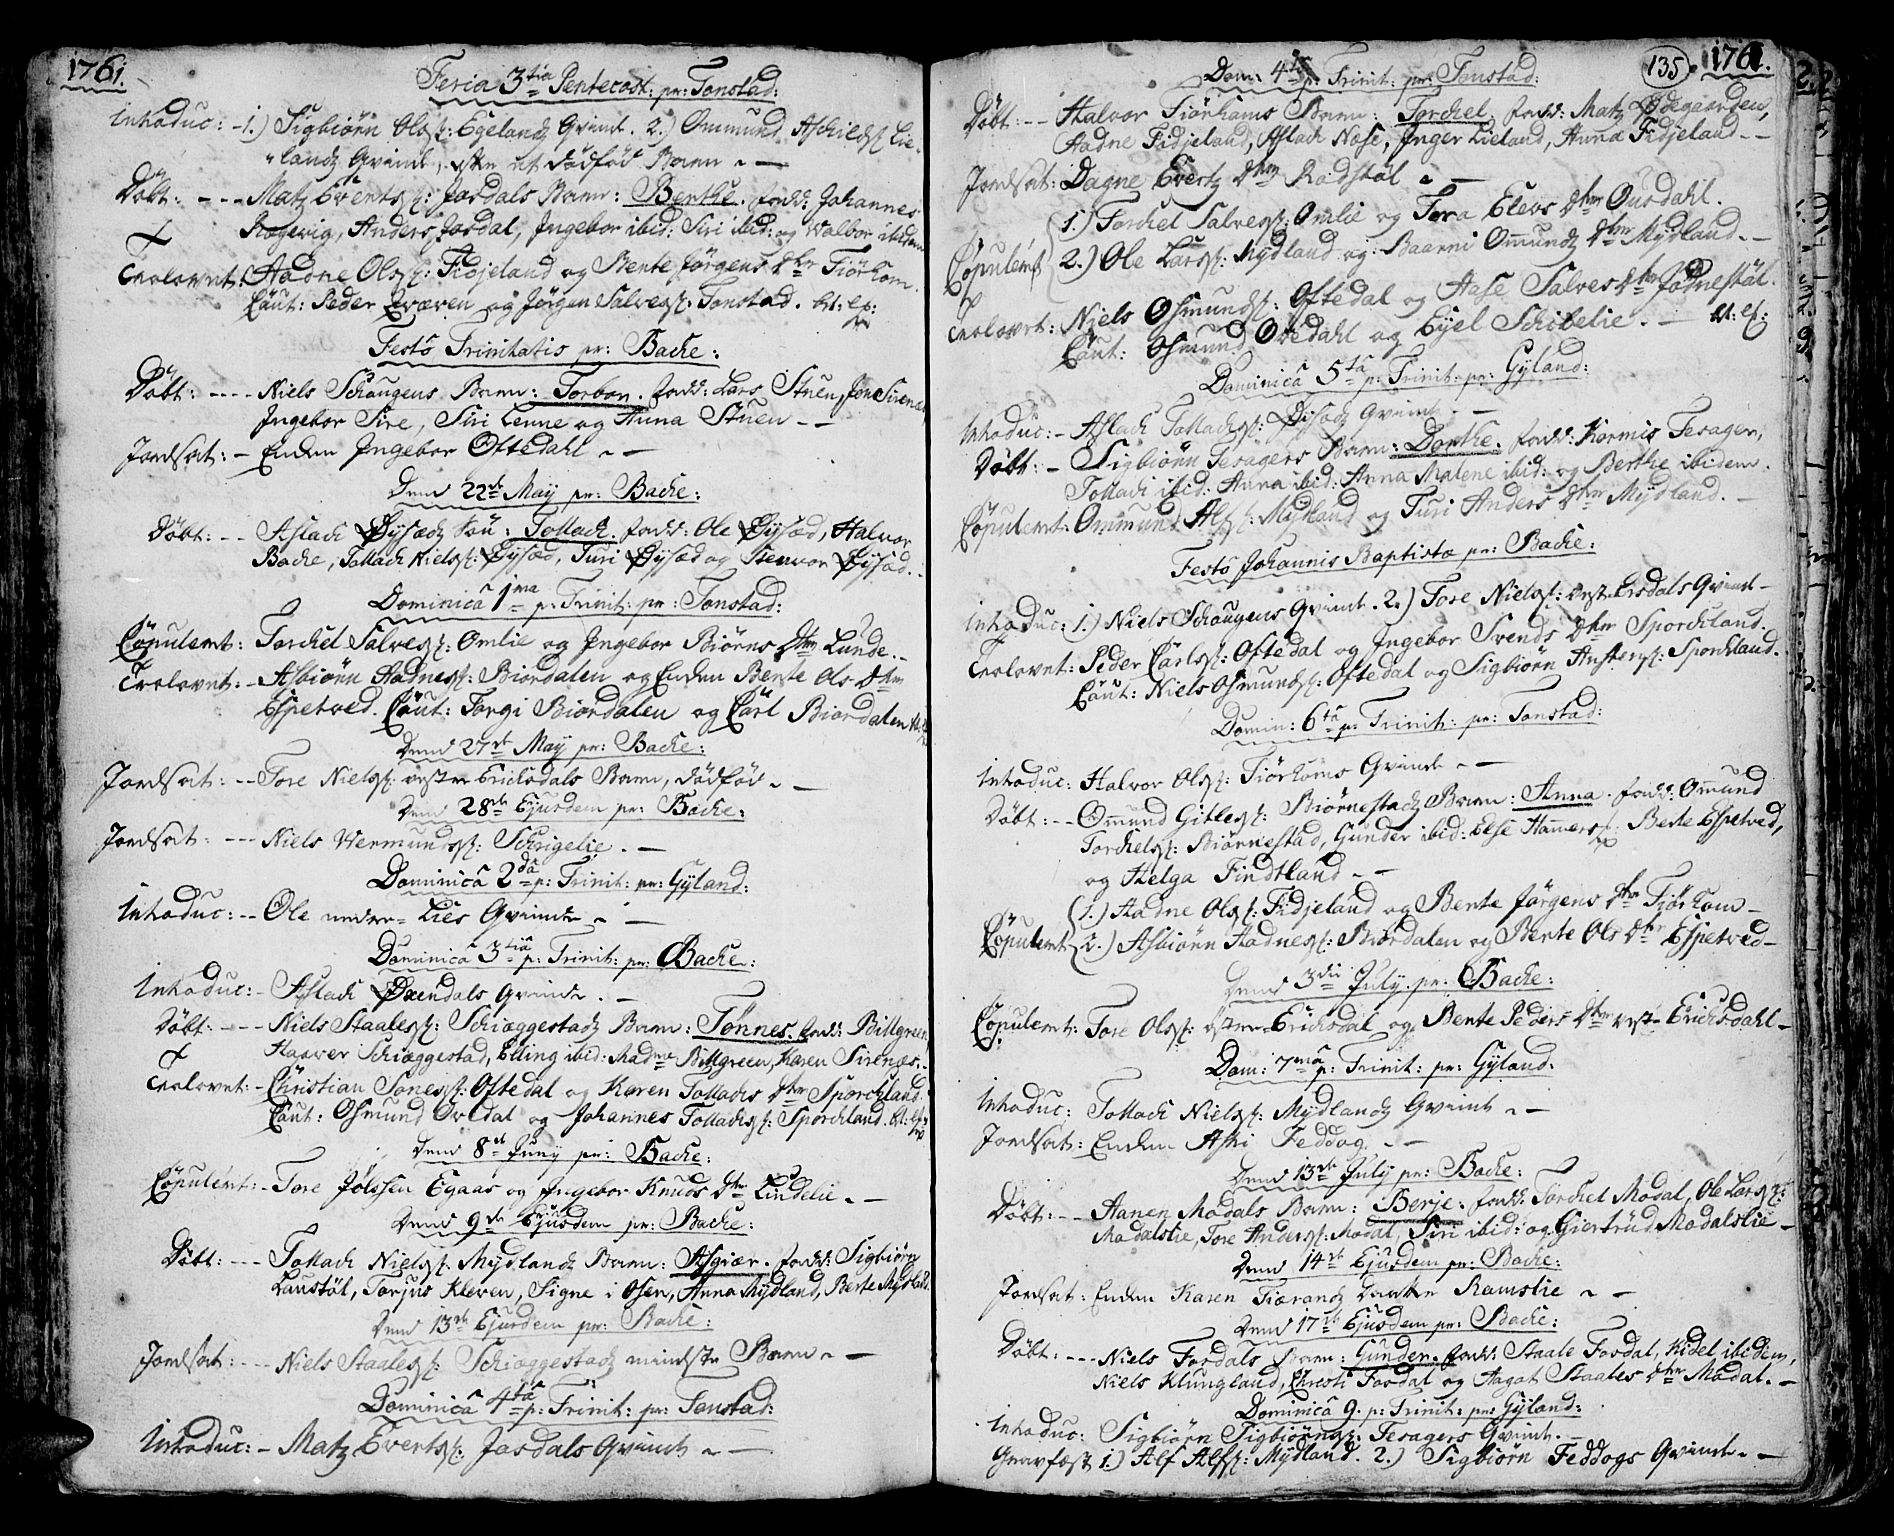 1761.
Feria 3tia Pentecost: pr: Tonstad:
Introduc: - 1.) Sigbiörn Ols: Egelands Qvinde. 2.) Ommund Aschilds: Lie-
lands Qvinde, efter et dödföd Barn
Döbt: - - - Matz Everts: Josdals Barn: Berthe. fadd: Johannes
Røgevig, Anders Josdal, Ingebor ibid: Siri ibid: og Valbor ibidem
Trolovet: Aadne Ols: Fidjeland og Bente Jörgens Dtr Tiörhom.
Caut: Peder Qværen og Jörgen Salves: Tonstad.
Festo Trinitatis pr: Backe:
Döbt: - - - - Niels Schougens Barn: Torbor. fadd: Lars Stuen, Jon Sirenæs,
Ingebor Sire, Siri Lenne og Anna Stuen - -
Jordsat: - Enken Ingebor Oftedahl
Dend 22de May pr: Backe:
Döbt: - - Aslach Øysæds Sön: Tollach. fadd: Ole Øysæd, Halvor
Backe, Tollach Niels: Øysæd, Turi Øysæd og Stenvor Øysæd.
Dominica 1ma p: Trinit: pr: Tonstad:
Copuleret: Torchel Salves: Omlie og Ingebor Biörns Dtr Lunde. -
Trolovet: - Asbiörn Aadnes: Biordalen og Enken Bente Ols Dtr
Espetved. Caut: Torgi Biordalen og Carl Biordalen
Dend 27de May pr: Backe:
Jordsat: - - Tore Niels: vestre Erichsdals Barn, dödföd
Dend 28de Ejusdem pr: Backe:
Jordsat: - - - Niels Vermunds: Schrigelie. -
Dominica 2da p: Trinit: pr: Gyland:
Introduc: - - Ole nedre- Lies Qvinde -
Dominica 3tia p: Trinit: pr: Backe:
Introduc: - Aslach Øxendals Qvinde. -
Döbt: - - - Niels Staales: Schiøggestads Barn: Tönnes. fadd: Billgreen,
Haaver Schiæggestad, Elling ibid: Madme Billgreen, Karen Sirenæs. -
Trolovet: - Christian Tones: Oftedal og Karen Tollachs Dtr Sporchland.
Caut: Osmund Ovedal og Johannes Tollachs: Sporchland.
Dend 8de Juny pr: Backe:
Copuleret: - Tore Jolssen Egaas og Ingebor Knuds Dtr Lindelie. -
Dend 9de Ejusdem pr: Backe:
Döbt: - - - Tollach Niels: Mydlands Barn: Asgiær. fadd: Sigbiörn
Laustöl, Torjus Kleven, Signe i Osen, Anna Mydland, Berte Mydland.
Dend 13de Ejusdem pr: Backe:
Jordsat: - - - Niels Staales: Schiæggestads mindste Barn -
Dominica 4ta p: Trinit: pr: Tonstad:
Introduc: - Matz Everts: Josdals Qvinde -
135. 1761.
Dom: 4ta p: Trinit: pr: Tonstad:
Döbt: - - Halvor Tiörhoms Barn: Torchel. fadd: Matz Ødegaarden,
Aadne Fidjeland, Aslach Nose, Inger Lieland, Anna Fidjeland - -
Jordsat: Dagne Everts Dtr Rodstöl -
Copuleret 1.) Torchel Salves: Omlie og Tora Elevs Dtr Ousdahl.
2.) Ole Lars: Mydland og Baarni Ommunds Dtr Mydland. -
Trolovet: Niels Osmunds: Oftedal og Aase Salves Dtr Jodnestöl.
Caut: Osmund Ovedahl og Eyel Schibelie. -
Dominica 5ta p: Trinit: pr: Gyland:
Introduc: - Aslach Tollachs: Øysæds Qvinde. -
Döbt: - Sigbiörn Tesagers Barn: Dorthe. fadd: Kormis Tesager,
Tollach ibid: Anna ibid: Anna Malene ibid: og Berthe ibidem.
Copuleret: Ommund Alfs: Mydland og Turi Anders Dtr Mydland. -
Festo Johannis Baptistæ pr: Backe:
Introduc: 1.) Niels Schougens Qvinde. 2.) Tore Niels: vest- Ersdals Qvinde -
Trolovet: Peder Carls: Oftedal og Ingebor Svends Dtr Sporchland.
Caut: Niels Osmunds: Oftedal og Sigbiörn Austens: Sporchland.
Domin: 6ta p: Trinit: pr: Tonstad:
Introduc: Halvor Ols: Tiörhoms Qvinde - -
Döbt: - - Ommund Gitles: Biörnestads Barn: Anna. fadd: Ommund
Torchels: Biörnestad, Gunder ibid: Else Hammers: Berte Espetved,
og Helga Findtland - -
Copuleret 1.) Aadne Ols: Fidjeland og Bente Jörgens Dtr Tiörhom -
2.) Asbiörn Aadnes: Biordalen og Bente Ols Dtr Espetved -
Dend 3die July pr: Backe:
Copuleret: Tore Ols: östre- Erichsdal og Bente Peders Dtr vest- Erichsdahl -
Dom: 7ma p: Trinit: pr: Gyland:
Introduc: Tollach Niels: Mydlands Qvinde - -
Jordsat: Enken Ashi Feddog - -
Dend 13de July pr: Backe:
Döbt: - - Aanen Modals Barn: Berje. fadd: Torchel Modal, Ole Lars:
Modalslie, Tore Anders: Modal, Siri ibid: og Giertrud Modalslie -
Dend 14de Ejusdem pr: Backe:
Jordsat: Enken Karen Ramslie - -
Dend 17de Ejusdem pr: Backe:
Döbt: - - - Niels Fosdals Barn: Gunder. fadd: Staale Fosdal, Kidel ibidem,
Niels Klungland, Christi Fosdal og Aagot Staales Dtr Modal. -
Dominica 9. p: Trinit: pr: Gyland:
Introduc: Sigbiörn Sigbiörns: Tesagers Qvinde. -
Gravfæst 1.) Alf Alfs: Mydland. 2.) Sigbiörn Feddogs Qvinde -